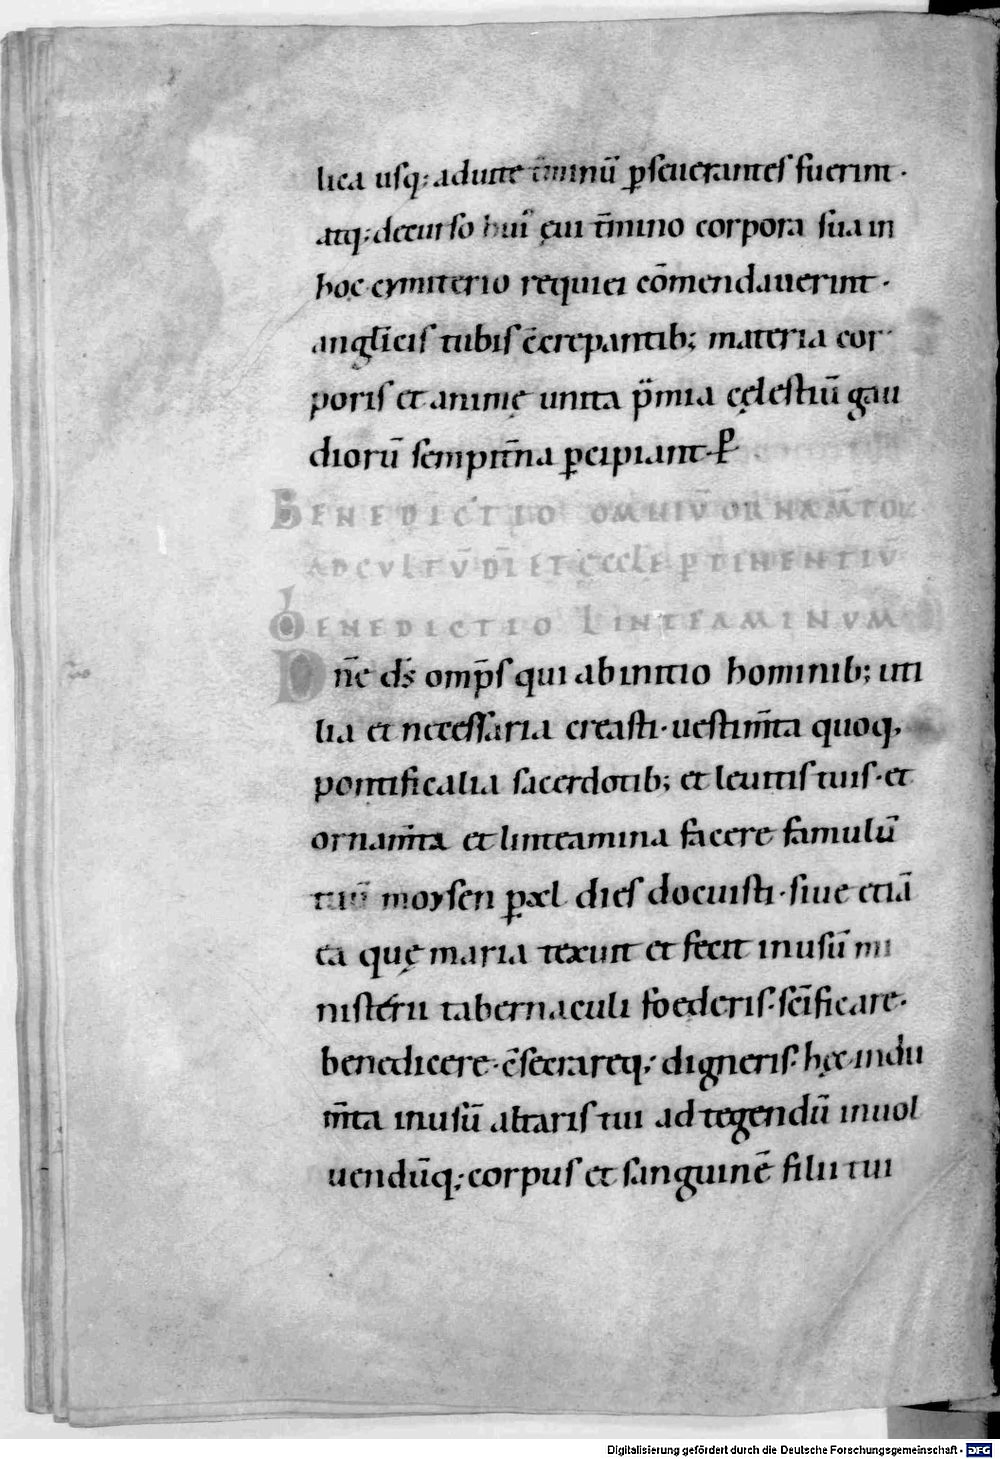 lica usq; ad uitę t̄minū ꝑseuerantes fuerint ·
atq; decurso huiꝰ ęui t̄mino corpora sua in
hoc cymiterio requiei cōmendauerint ·
angl̄icis tubis c̄crepantib; materia cor
poris et animę unita p̄mia cęlestiū gau
diorū sempit̄na ꝑcipiant · ꝑ
BENEDICTIO OMNIŪ ORNAM̄TOR̄
AD CVLTV̄ DI ET ĘCCLĘ PTINENTIV̄
BENEDICTIO LINTEAMINVM
Dn̄e ds̄ omp̄s qui ab initio hominib; uti
lia et necessaria creasti · uestim̄ta quoq,
pontificalia sacerdotib; et leuitis tuis · et
ornam̄ta et linteamina facere famulū
tuū moysen ꝑ xl dies docuisti · siue etiā
ea quę maria texuit et fecit in usū mi
nisterii tabernaculi foederis · sc̄ificare ·
benedicere · c̄secrareq; digneris · hęc indu
m̄ta in usū altaris tui ad tegendū inuol
uendūq; corpus et sanguinē filii tui
Digitalisierung gefördert durch die Deutsche Forschungsgemeinschaft - DFG